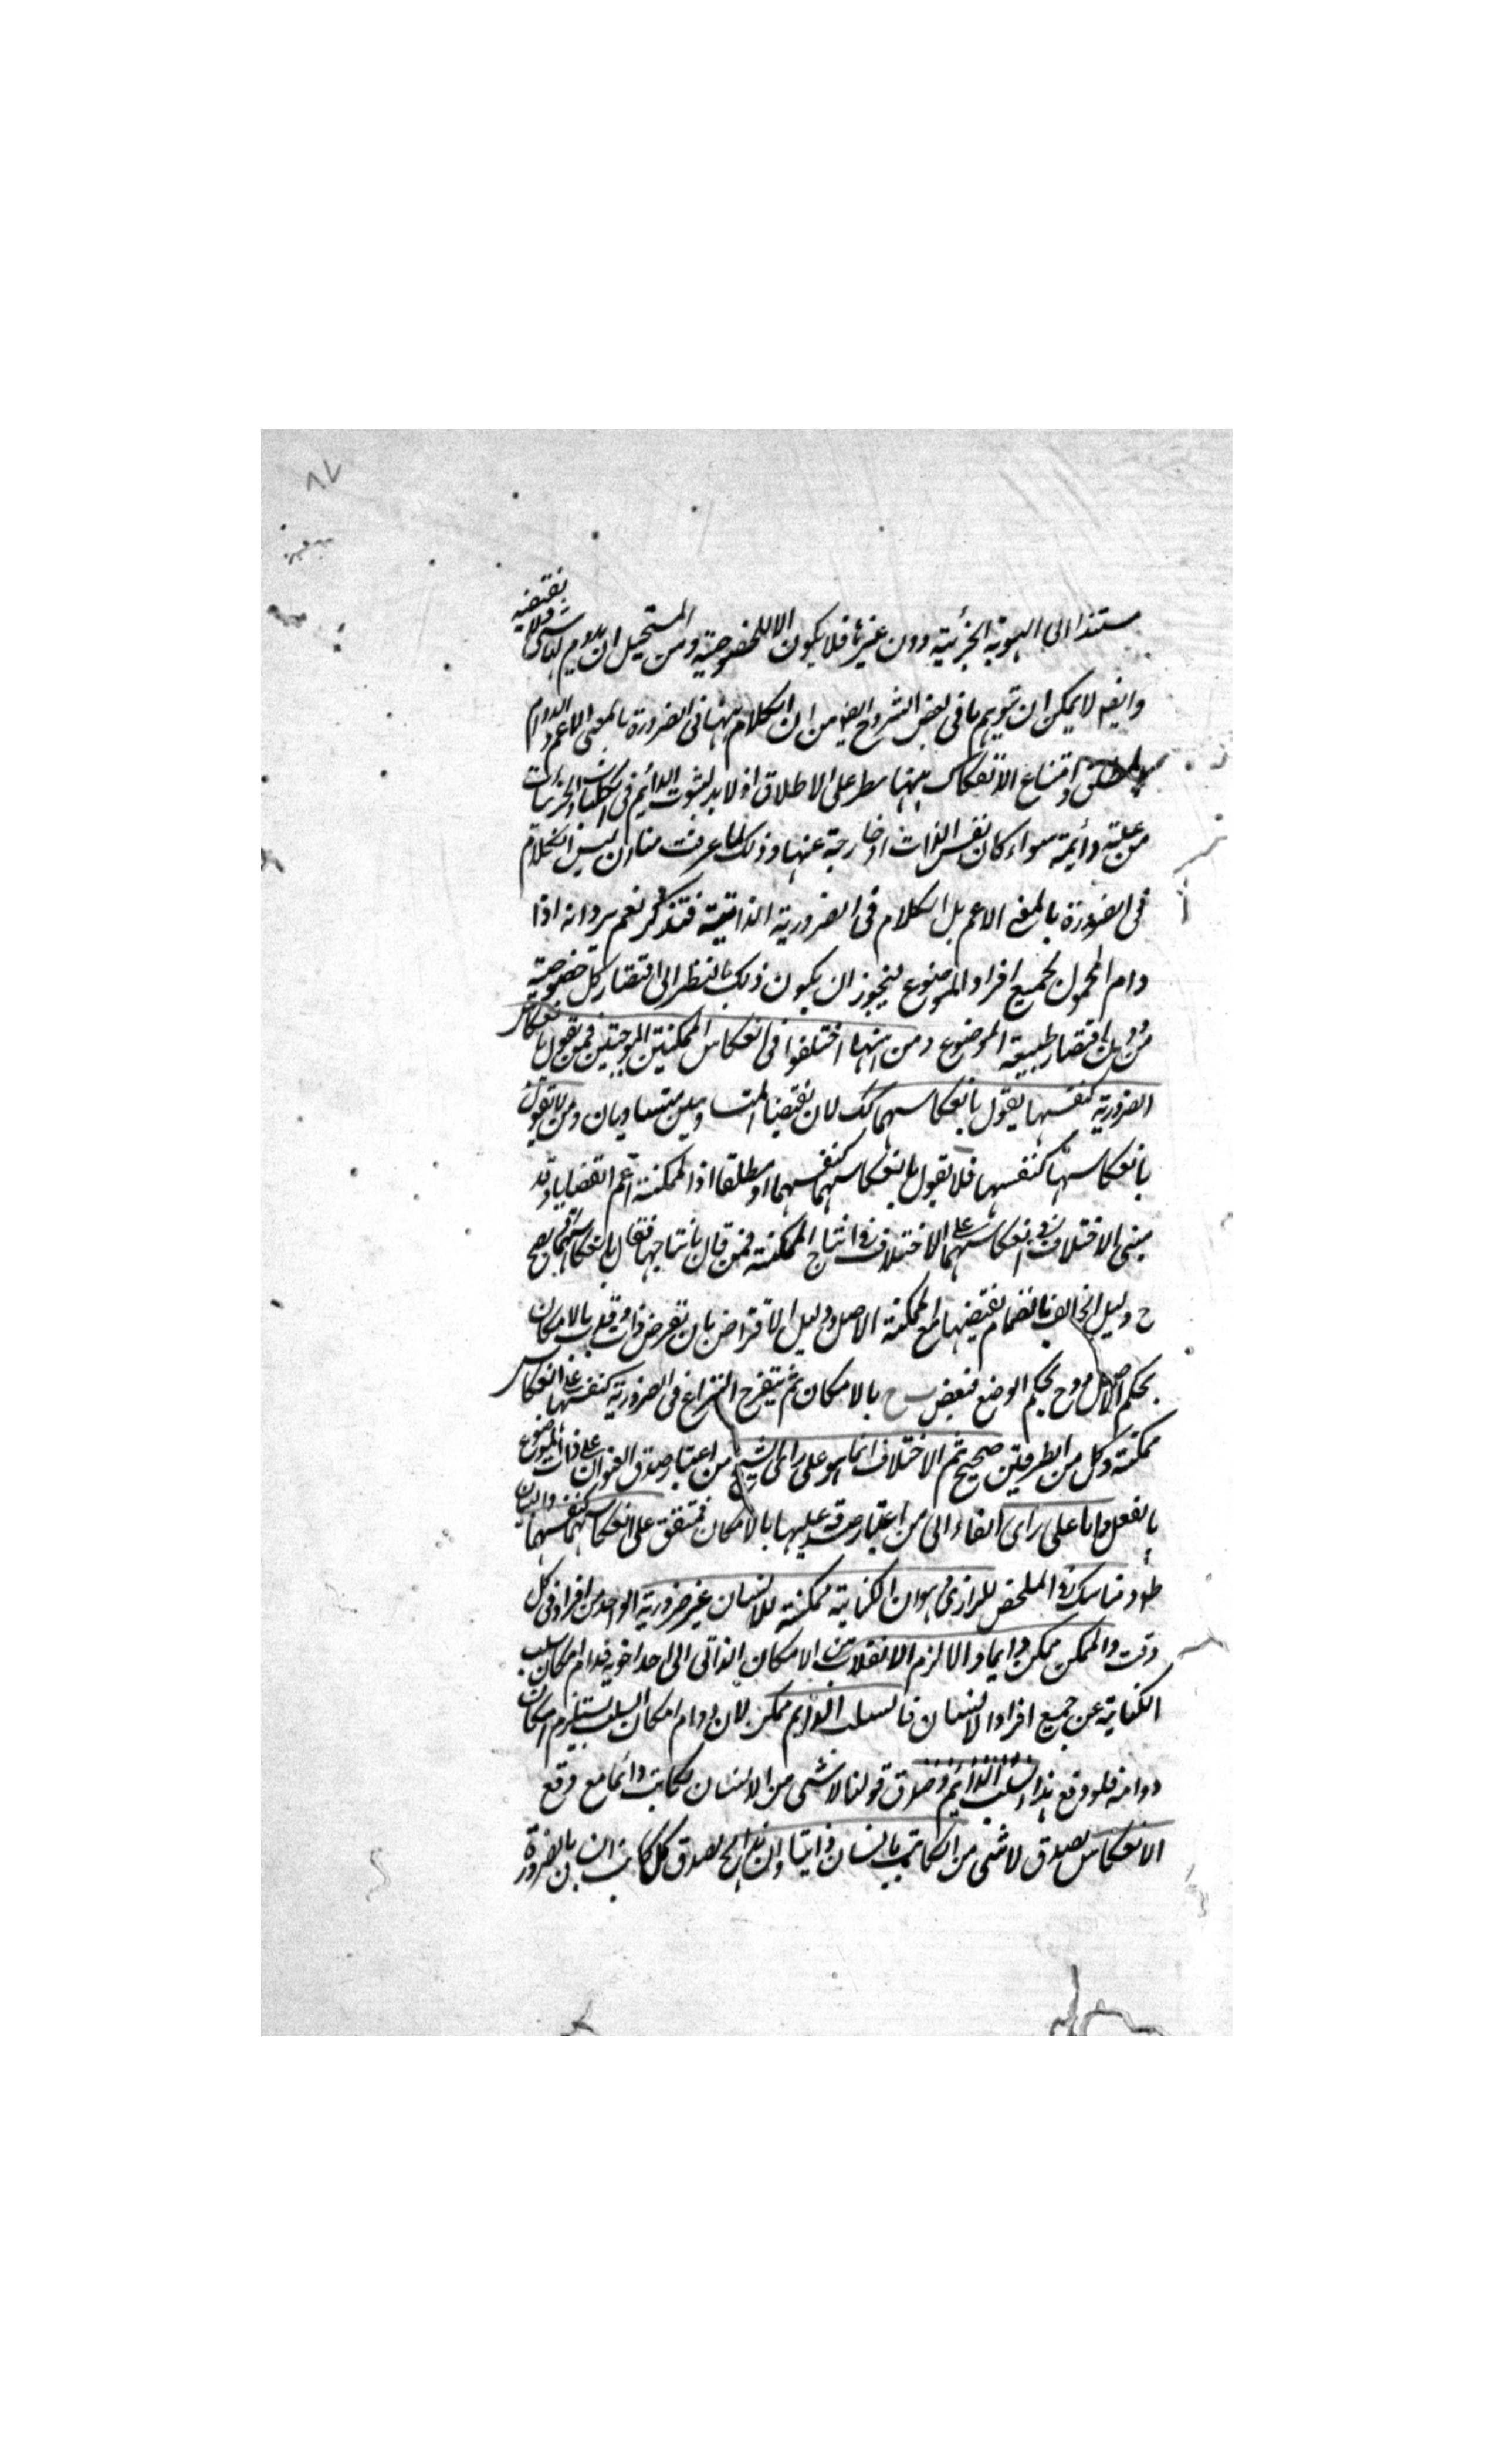 ٨٧
مستندا الى الهوية الجزئية دون غيرها فلا يكون الا للخصوصية ومن المستحيل ان يدوم لها شئ ولا يقتضيه
وايضه لا يمكن ان توهم ما فى بعض الشروح ايضه من ان الكلام ههنا فى الضرورة بالمعنى الاعم والدوام
المطلق وامتناع الانفكاك بينهما مطرد على الاطلاق اذ لا بد لثبوت الدائم فى الكليات والجزئيات
من علة دائمة سواء كان نفس الذات او خارجة عنها وذلك لما عرفت منا ان ليس الكلام
فى الضرورة بالمعنى الاعم بل الكلام فى الضرورية الذاتية فتذكر نعم يرد انه اذا
دام المحمول لجميع افراد الموضوع فيجوز ان يكون ذلك بالنظر الى اقتضاء كل خصوصية
من دون اقتضاء طبيعة الموضوع ومن ههنا اختلفوا فى انعكاس الممكنتين الموجبتين فمن يقول بانعكاس
الضرورية كنفسها يقول بانعكاسهما كك لان نقيضا المتساويين متساويان ومن لا يقول
بانعكاسها كنفسها فلا يقول بانعكاسهما كنفسهما او مطلقا اذ الممكنة اعم القضايا وقد
مبنى الاختلاف فى انعكاسهما على الاختلاف فى انتاج الممكنة فمن قال بانتاجها فقال بانعكاسهما فيصح
ح دليل الخلف بانضمام نقيضها مع الممكنة الاصل ودليل الافتراض بان تفرض ذات وقلب بالامكان
بحكم الاصل وح بحكم الوضع فبعض ب ح بالامكان ثم يتفرع النزاع فى الضرورية كنفسها على انعكاس
ممكنة وكل من الطرفين صحيح ثم الاختلاف انما هو على راى الشيخ من اعتبار صدق العنوان على ذات الموضوع
بالفعل واما على راى الفارابى من اعتبار صدقه عليها بالامكان فمتفق على انعكاسهما كنفسهما والبيان
ظ وهنا شك فى الملخص للرازى وهو ان الكتابة ممكنة للانسان غير ضرورية لواحد من افراده فى كل
وقت والممكن ممكن دائما والا لزم الانقلاب من الامكان الذاتى الى احد اخويه فدام امكان سلب
الكتابة عن جميع افراد الانسان فالسلب الدائم ممكن لان دوام امكان السلب يستلزم امكان
دوامه فلو وقع هذا السلب الدائم وصدق قولنا لا شئ من الانسان بكاتب دائما مع وقع
الانعكاس لصدق لا شئ من الكاتب بانسان دائما وان هذا مح لصدق كل كاتب انسان بالضرورة